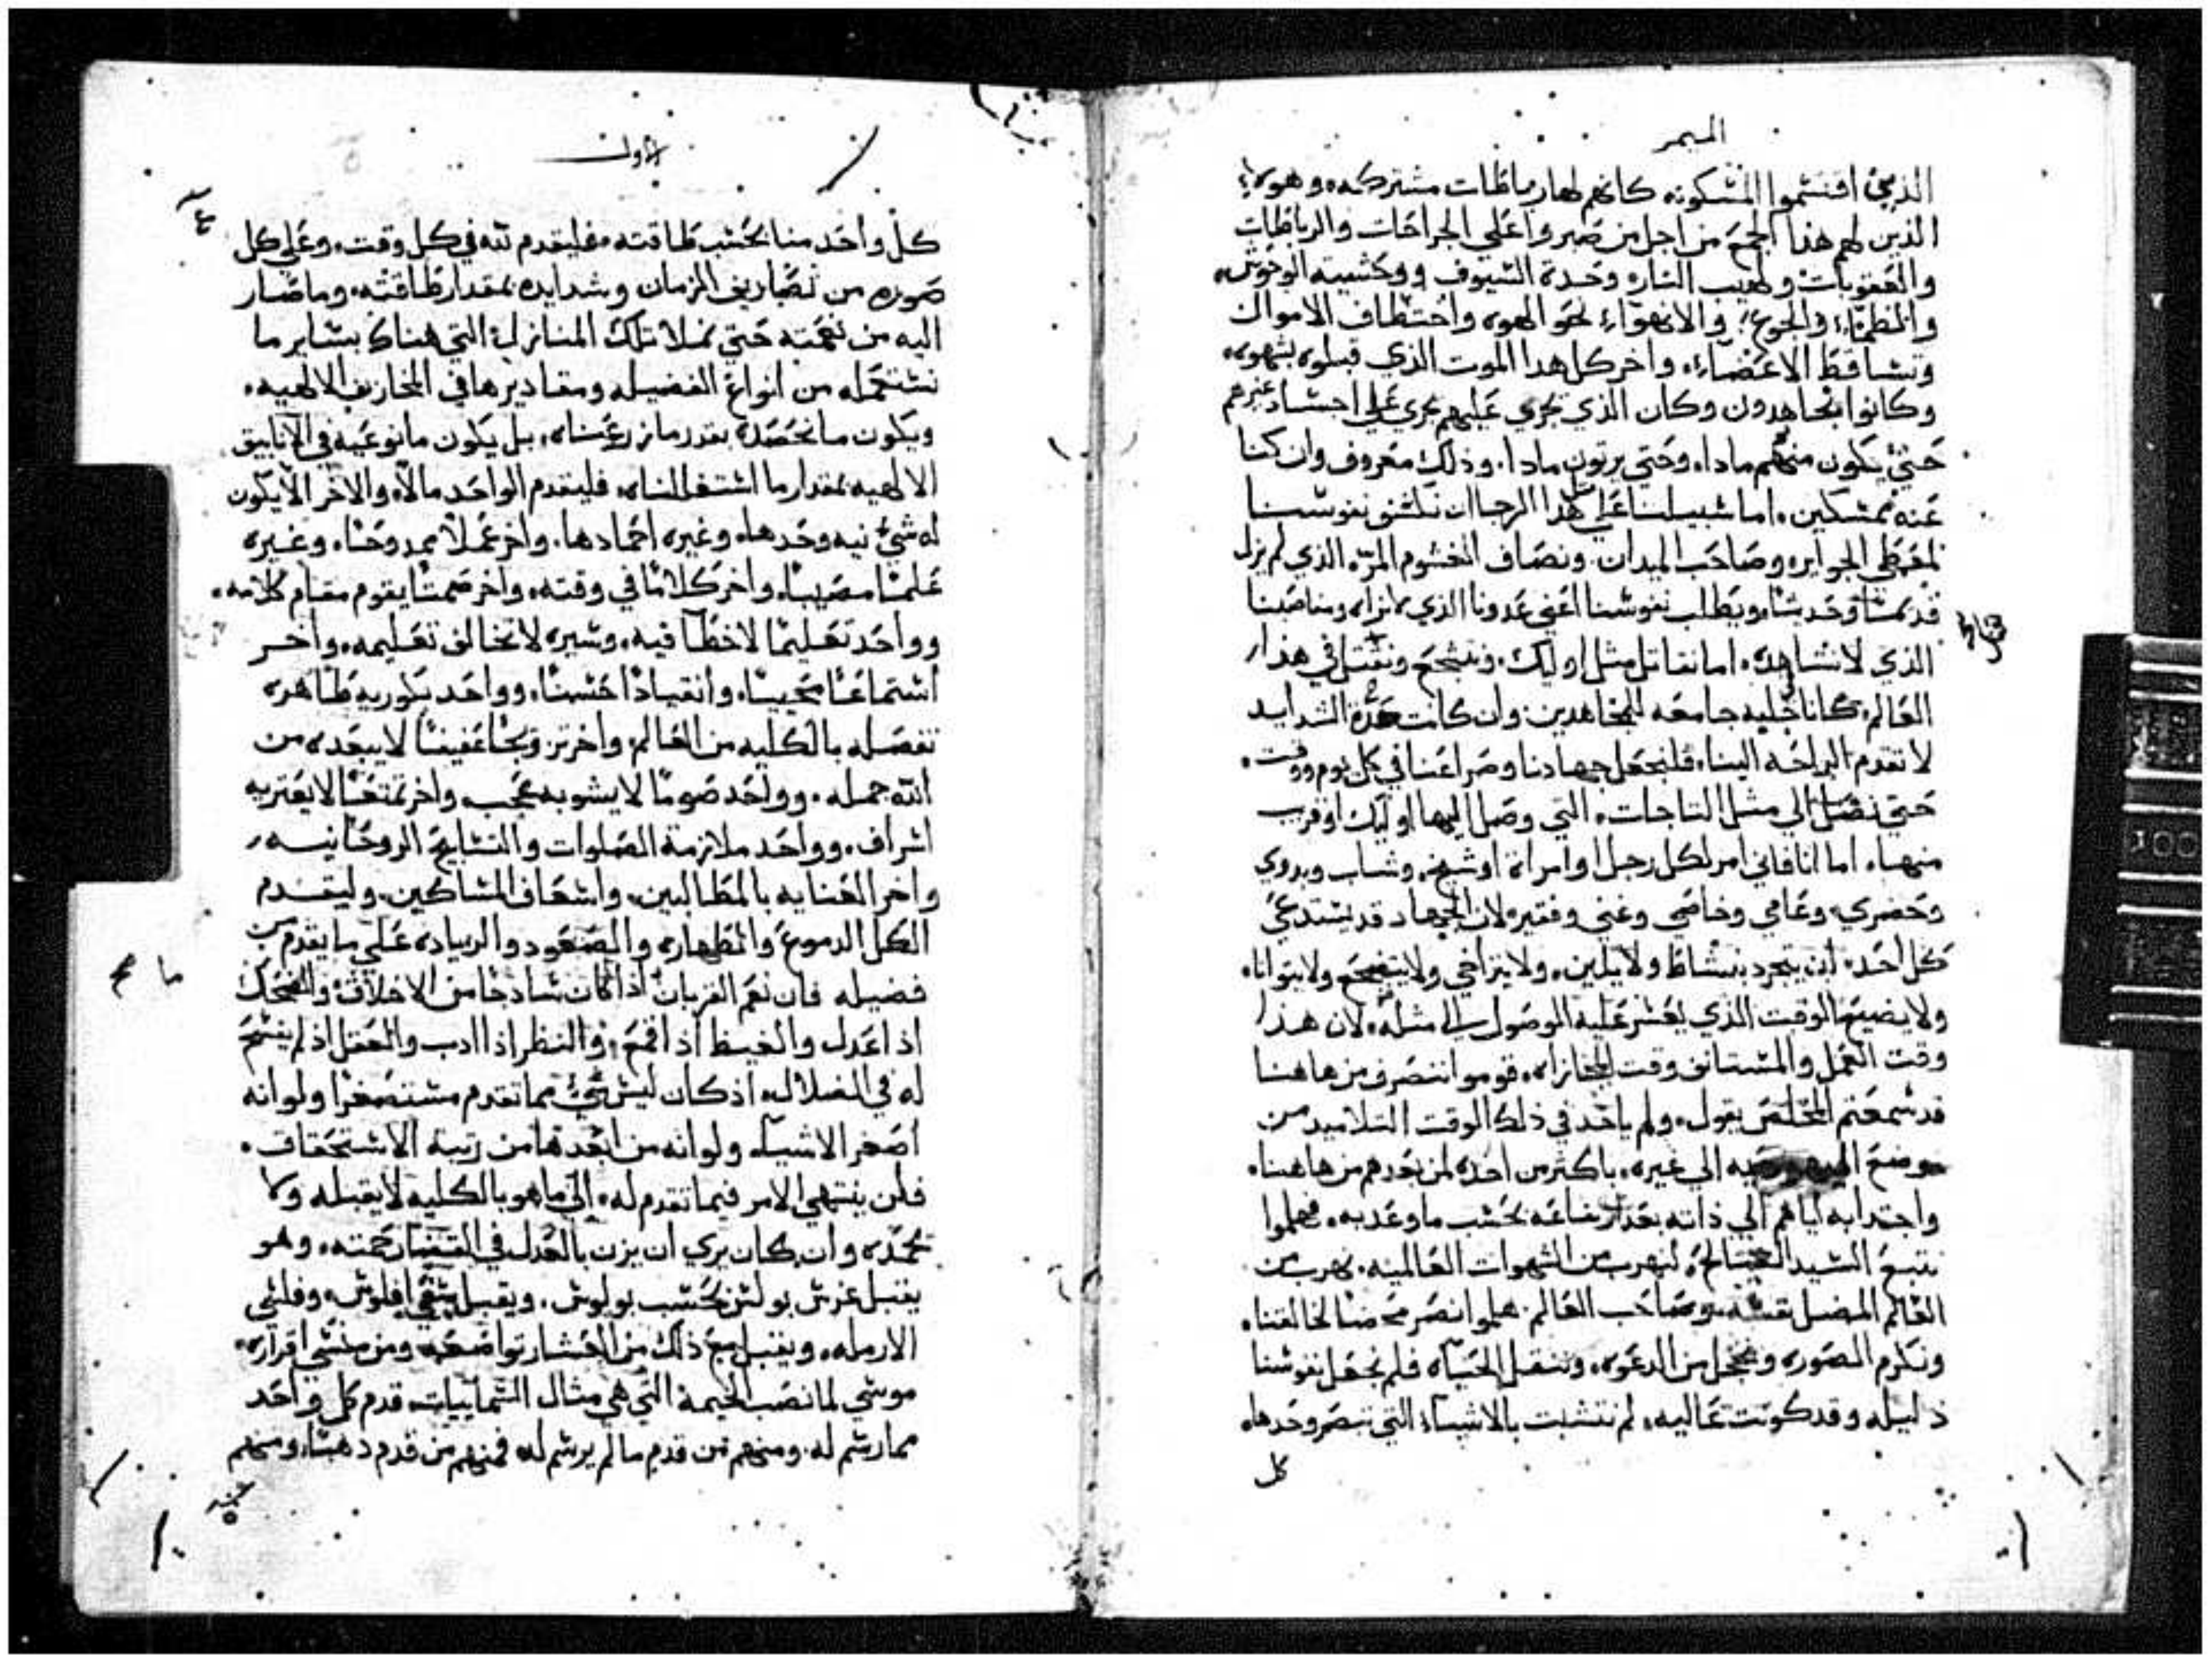 الميمر
الذين اقتسموا المسكونه كانهم لها رباطات مشتركه، وهوه
الذين لهم هذا الجمع من اجل من صبروا على الجراحات والرباطات
والعقوبات ولهيب النار، وحدة السيوف ووحشية الوحوش،
والظماء والجوع، والانهواء نحو الهوه واختطاف الاموال
وتساقط الاعضاء، واخر كل هدا الموت الذي قبلوه بشهوه،
وكانوا مجاهدون وكان الذي يجري عليهم يجري علي اجساد غيرهم
حتي يكون منهم مادا، وحتي يرتون مادا، وذلك معروف وان كنا
عنه ممسكين، اما سبيلنا علي هدا الرجا ان نكشف نفوسنا
لمعطي الجوايز، وصاحب الميدان، ونصاف الخشوم المرّه الذي لم يزل
قديمًا وحديثًا، ويطلب نفوسنا اعني عدونا الذي نراه ومناصبنا
الذي لا نشاهده، اما نقاتل مثل اوليك، ونتشجع ونقتل في هذا
العالم، كاناحليه جامعه للمجاهدين وان كانت هذه الشدايد
لا تقدم الراحه الينا، فلنجعل جهادنا وصراعنا في كل يوم ووقت،
حتي نصل الي مثل التاجات، التي وصل اليها اوليك او قريب
منها، اما انا فاني امر لكل رجل او امراة او شيخ، وشاب وبدوي
وحضري، وعامي وخاصي وغني وفقير، لان الجهاد قد يستدعي
كل احد، ان يتجرد بنشاط ولا يلين، ولا يتراخي ولا يتضجع ولا يتوانا،
ولا يضيع الوقت الذي يعسر عليه الوصول الي مثله، لان هذا
وقت العمل والمستانف وقت المجازاه، قوموا ننصرف من هاهنا
قد سمعتم المخلص يقول، ولم ياخد في ذلك الوقت التلاميد من
موضع اليهوديه الي غيره، باكثر من اخده لمن بعدهم من هاهنا،
واجتدابه اياهم الي ذاته بعد ارتفاعه بحسب ما وعد به، فهلموا
نتبع السيد الصالح، لنهرب من الشهوات العالميه، نهرب من
العالم المضل نفسه، وصاحب العالم، هلموا نصر محضا لخالقنا،
ونكرم الصوره ونخجل من الدعوه، وننقل الحياه فلم نجعل نفوسنا
ذليله وقد كونت عاليه، لم نتشبت بالاشياء التي تبصر وحدها،
كل
الاول
كل واحد منا بحسب طاقته، فليقدم لله في كل وقت، وعلي كل
صوره من تصاريف الزمان وشدايده بمقدار طاقته، وما صار
اليه من نعمته حتي نملا تلك المنازل التي هناك بساير ما
نستعمله من انواع الفضيله ومقاديرها في المخازن الالهيه،
ويكون ما نحصده بقدر ما زرعناه، بل يكون ما نوعيه في الانابيق
الالهيه بمقدار ما اشتغلناه، فليقدم الواحد مالًا، والاخر الا يكون
له شيء نيه وحدها، وغيره اجهادها، واخر عملًا ممدوحًا، وغيره
علمًا مصيبًا، واخر كلامًا في وقته، واخر صمتًا يقوم مقام كلامه،
وواحد تعليمًا لا خطا فيه، وسيره لا تخالف تعليمه، واخر
استماعًا مجيبًا، وانقيادًا حسنًا، وواحد بكوريه طاهره
تفصله بالكليه من العالم، واخر تزوجًا عفيفًا لا يبعده من
الله جمله، وواحد صومًا لا يشوبه عجب واخر تمتعًا لا يعتريه
اشراف، وواحد ملازمة الصلوات والتسابيح الروحانيه،
واخر العنايه بالمطالبين، واسعاف المساكين، وليقدم
الكل الدموع والطهاره والصعود والزياده علي ما يقدم من
فضيله فان نعم القربان اذا كان ساذجًا من الاخلاق والضحك
اذا عدل والغيظ اذا قمع، والنظر اذا ادب والعقل اذ لم يفسح
له في الضلال، اذ كان ليس شيء مما تقدم مستصغرًا ولو انه
اصغر الاشيا، ولو انه من ابعدها من رتبة الاستحقاق،
فلن ينتهي الامر فيما تقدم له، الي ما هو بالكليه لا يقبله ولا
يحمده وان كان يري ان يزن بالعدل في القضا رحمته، وهو
يقبل غرس بولس بحسب بولوس، ويقبل سقي افلوس، وفلسي
الارمله، ويقبل مع ذلك من العشار تواضعه، ومن منسي اقراره،
موسي لما نصب الخيمة التي هي مثال السماييات، قدم كل واحد
مما رسم له، ومنهم من قدم ما لم يرسم له، فمنهم من قدم ذهبًا، ومنهم